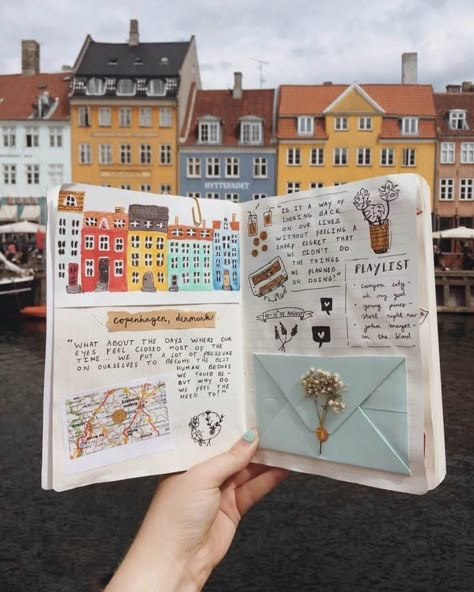 HYTTEFADET
copenhagen, denmark
"WHAT ABOUT THE DAYS WHERE OUR
EYES FEEL CLOSED MOST OF THE
TIME... WE PUT A LOT OF PRESSURE
ON OURSELVES TO BECOME THE BEST
HUMAN BEINGS
WE COULD BE -
BUT WHY DO
WE FEEL THE
NEED TO?"
IS IT A WAY OF
LOOKING BACK
ON OUR LIVES
WITHOUT FEELING A
SHARP REGRET THAT
WE DIDN'T DO
THE THINGS
WE PLANNED
ON DOING?"
PLAYLIST
- canyon city
- oh my god
- young pines
- start right now
john mayer
- in the blood